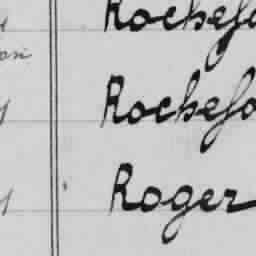 Rochefo
Rochefo
Roger